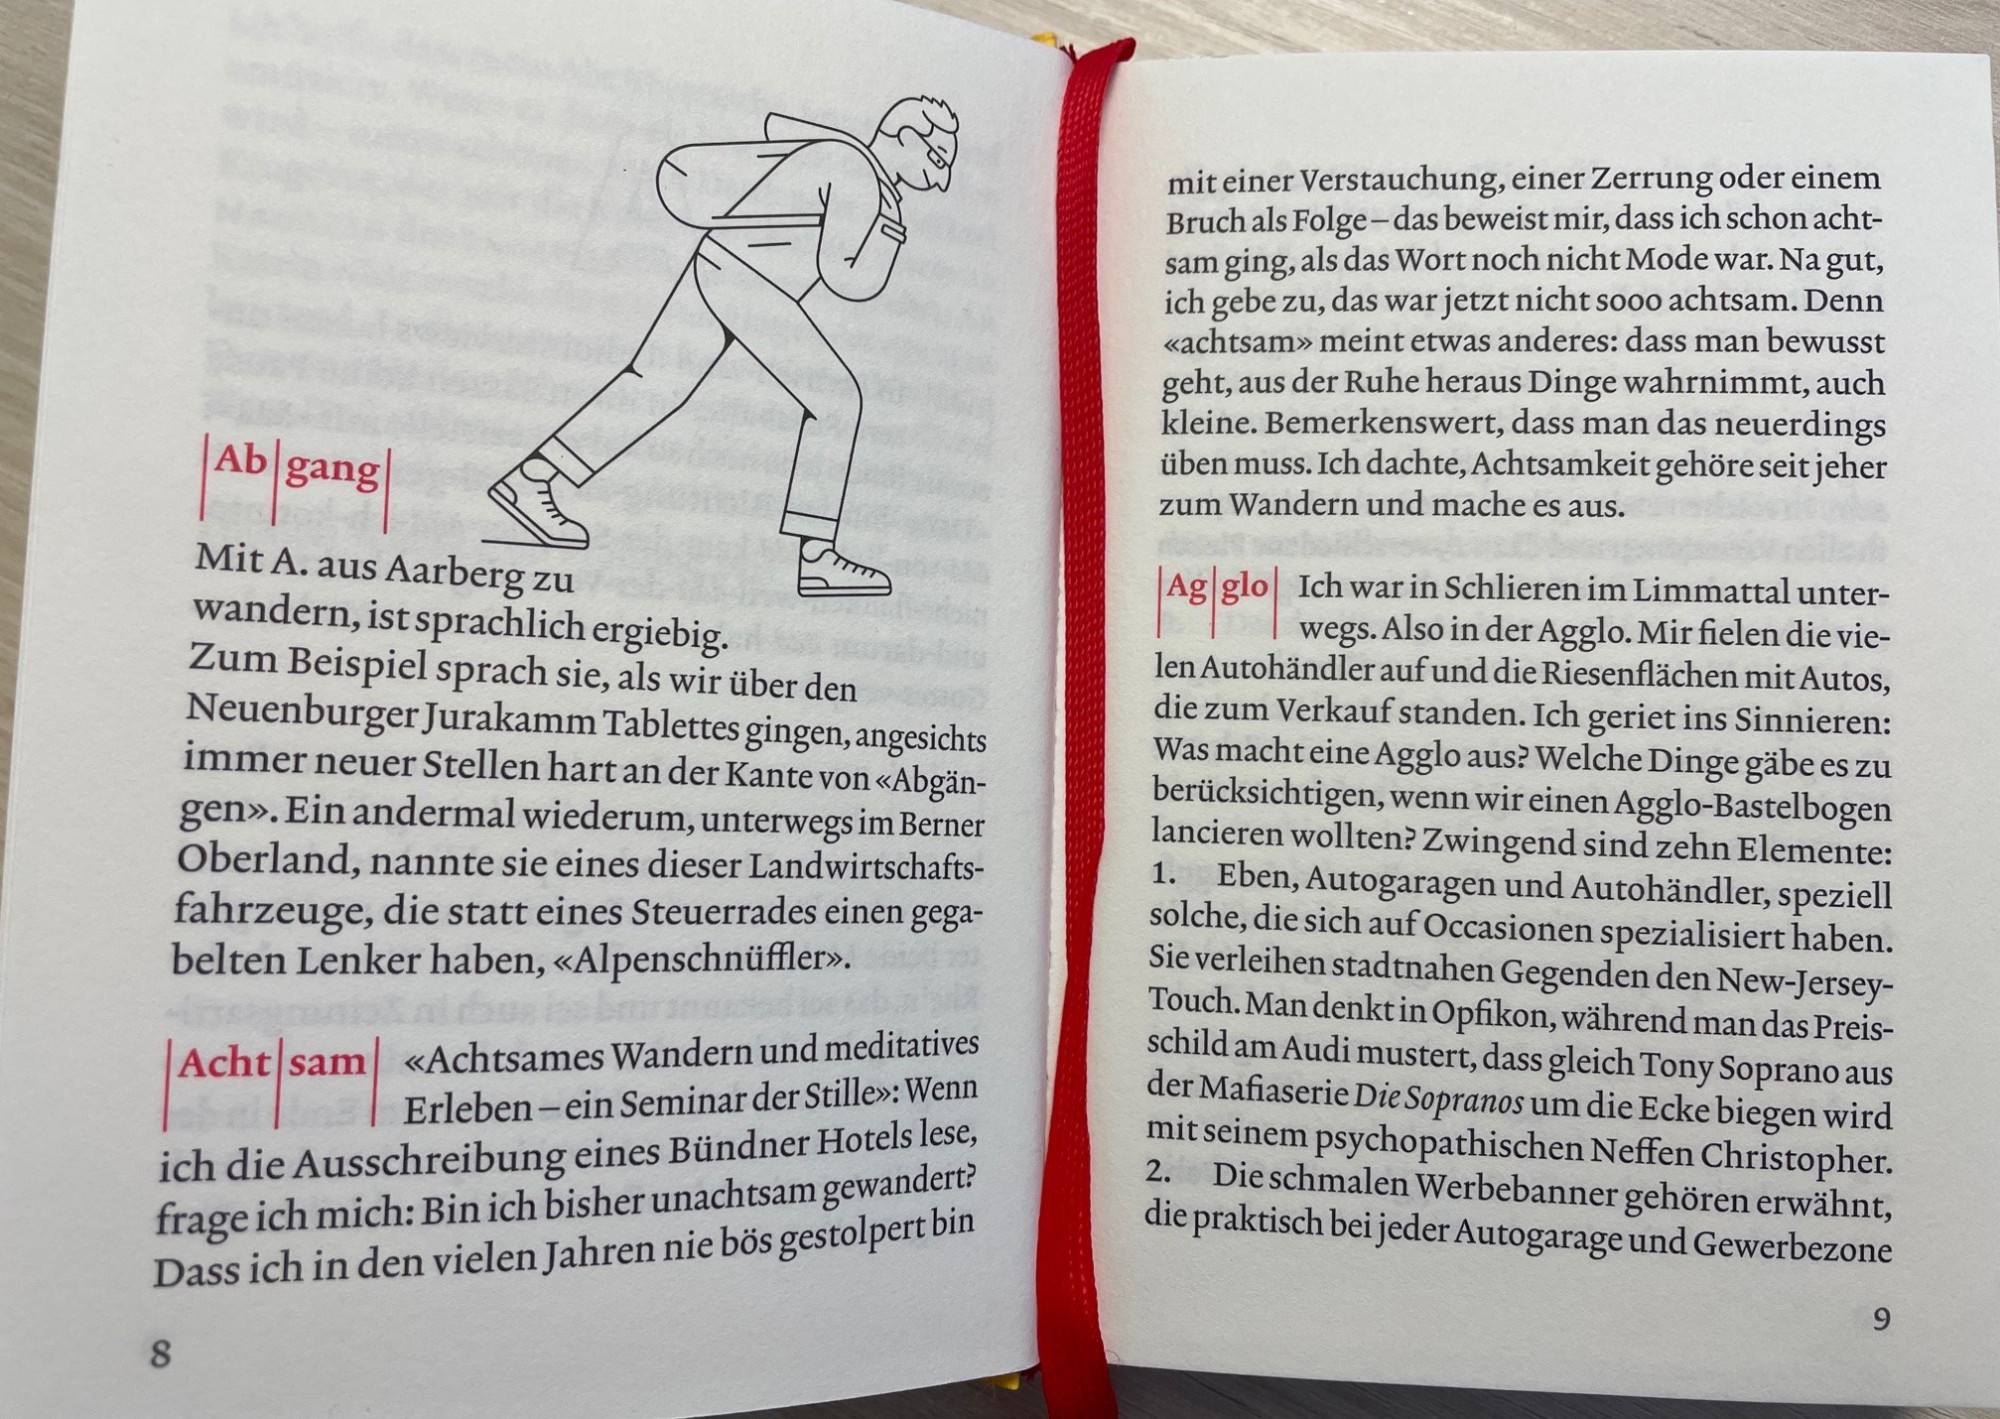 Ab|gang
Mit A. aus Aarberg zu
wandern, ist sprachlich ergiebig.
Zum Beispiel sprach sie, als wir über den
Neuenburger Jurakamm Tablettes gingen, angesichts
immer neuer Stellen hart an der Kante von «Abgän-
gen». Ein andermal wiederum, unterwegs im Berner
Oberland, nannte sie eines dieser Landwirtschafts-
fahrzeuge, die statt eines Steuerrades einen gega-
belten Lenker haben, «Alpenschnüffler».
Acht|sam «Achtsames Wandern und meditatives
Erleben – ein Seminar der Stille»: Wenn
ich die Ausschreibung eines Bündner Hotels lese,
frage ich mich: Bin ich bisher unachtsam gewandert?
Dass ich in den vielen Jahren nie bös gestolpert bin
8
mit einer Verstauchung, einer Zerrung oder einem
Bruch als Folge – das beweist mir, dass ich schon acht-
sam ging, als das Wort noch nicht Mode war. Na gut,
ich gebe zu, das war jetzt nicht sooo achtsam. Denn
«achtsam» meint etwas anderes: dass man bewusst
geht, aus der Ruhe heraus Dinge wahrnimmt, auch
kleine. Bemerkenswert, dass man das neuerdings
üben muss. Ich dachte, Achtsamkeit gehöre seit jeher
zum Wandern und mache es aus.
Ag|glo Ich war in Schlieren im Limmattal unter-
wegs. Also in der Agglo. Mir fielen die vie-
len Autohändler auf und die Riesenflächen mit Autos,
die zum Verkauf standen. Ich geriet ins Sinnieren:
Was macht eine Agglo aus? Welche Dinge gäbe es zu
berücksichtigen, wenn wir einen Agglo-Bastelbogen
lancieren wollten? Zwingend sind zehn Elemente:
1. Eben, Autogaragen und Autohändler, speziell
solche, die sich auf Occasionen spezialisiert haben.
Sie verleihen stadtnahen Gegenden den New-Jersey-
Touch. Man denkt in Opfikon, während man das Preis-
schild am Audi mustert, dass gleich Tony Soprano aus
der Mafiaserie Die Sopranos um die Ecke biegen wird
mit seinem psychopathischen Neffen Christopher.
2. Die schmalen Werbebanner gehören erwähnt,
die praktisch bei jeder Autogarage und Gewerbezone
9